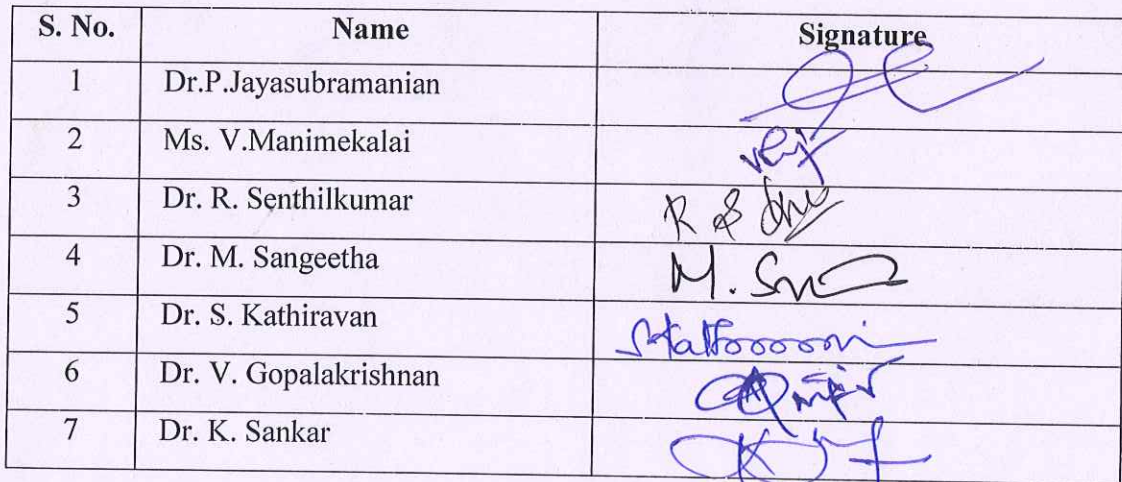 S. No. Name Signature
1 Dr.P.Jayasubramanian
2 Ms. V.Manimekalai
3 Dr. R. Senthilkumar
4 Dr. M. Sangeetha M.
5 Dr. S. Kathiravan
6 Dr. V. Gopalakrishnan
7 Dr. K. Sankar